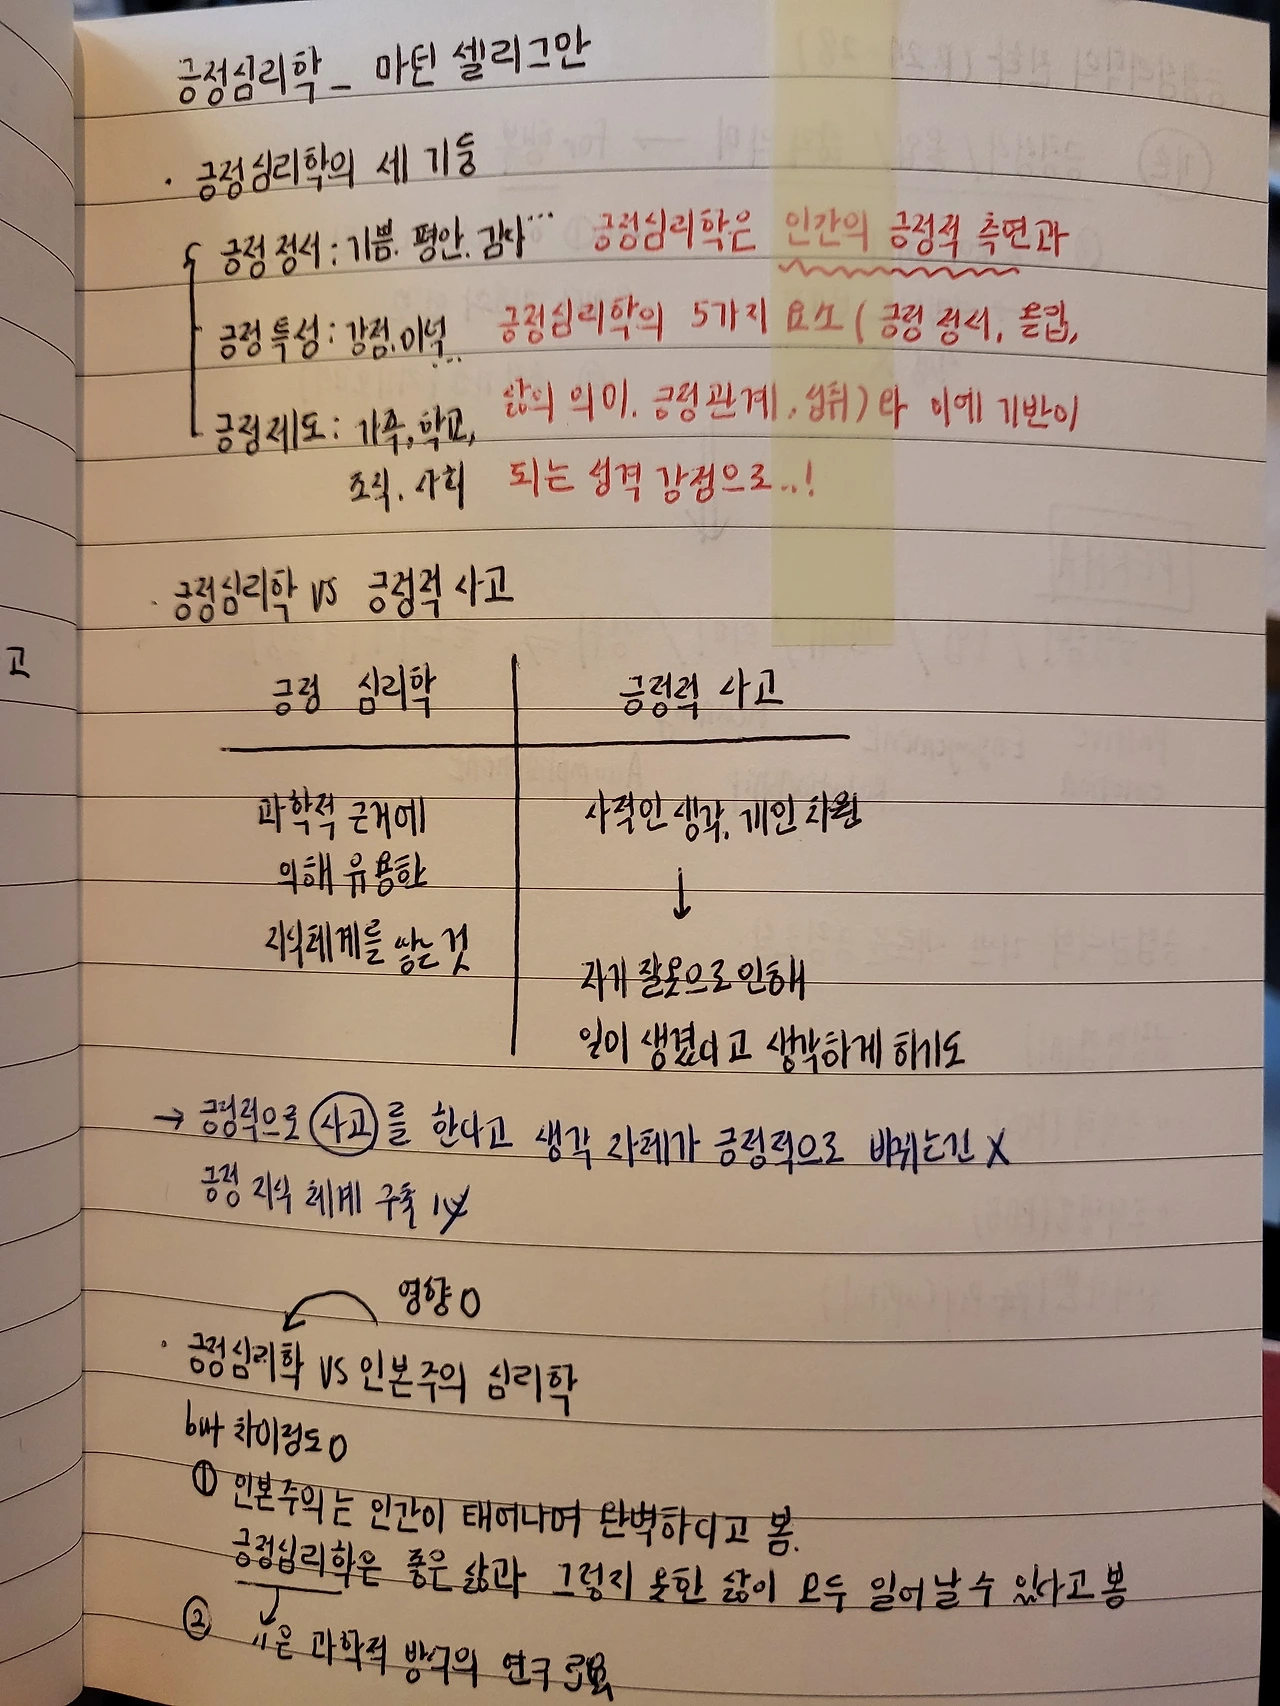 긍정심리학_ 마틴 셀리그만
· 긍정심리학의 세 기둥
긍정 정서 : 기쁨. 평안. 감사…
긍정 특성 : 강점. 미덕...
긍정제도 : 가족, 학교,
조직. 사회
긍정심리학은 인간의 긍정적 측면과
긍정심리학의 5가지 요소 ( 긍정 정서, 몰입,
삶의 의미. 긍정관계, 성취) 와 이에 기반이
되는 성격 강점으로..!
· 긍정심리학 VS 긍정적 사고
긍정 심리학
과학적 근거에
의해 유용한
지식체계를 쌓는 것
긍정적 사고
사적인 생각, 개인 차원
↓
자기 잘못으로 인해
일이 생겼다고 생각하게 하기도
→ 긍정적으로 사고를 한다고 생각 자체가 긍정적으로 바뀌는건 X
긍정 지식 체계 구축
영향 O
· 긍정심리학 VS 인본주의 심리학
but 차이점도 O
① 인본주의는 인간이 태어나며 완벽하다고 봄.
긍정심리학은 좋은 삶과 그렇지 못한 삶이 모두 일어날 수 있다고 봄
② 〃은 과학적 방구의 연구
고